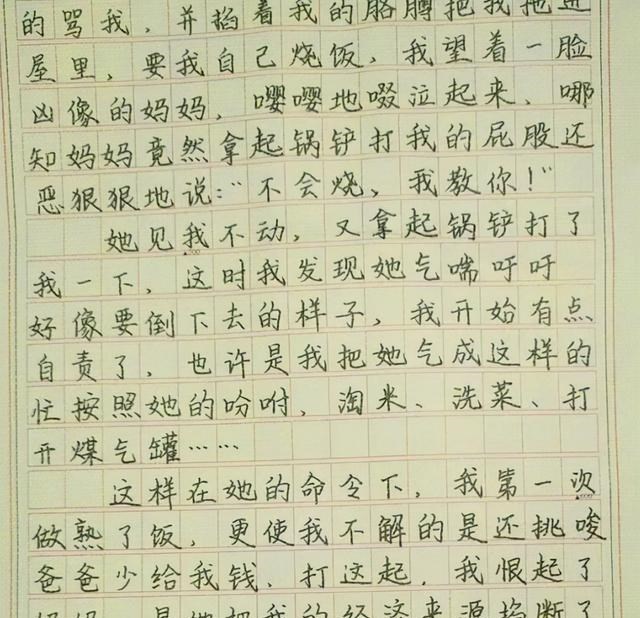 的骂我，并掐着我的胳膊把我拖进
屋里，要我自己烧饭，我望着一脸
凶像的妈妈，嘤嘤地啜泣起来，哪
知妈妈竟然拿起锅铲打我的屁股还
恶狠狠地说：“不会烧，我教你！”
她见我不动，又拿起锅铲打了
我一下，这时我发现她气喘吁吁
好像要倒下去的样子，我开始有点
自责了，也许是我把她气成这样的
忙按照她的吩咐，淘米、洗菜、打
开煤气罐……
这样在她的命令下，我第一次
做熟了饭，更使我不解的是还挑唆
爸爸少给我钱，打这起，我恨起了
妈妈，是她把我的经济来源掐断了